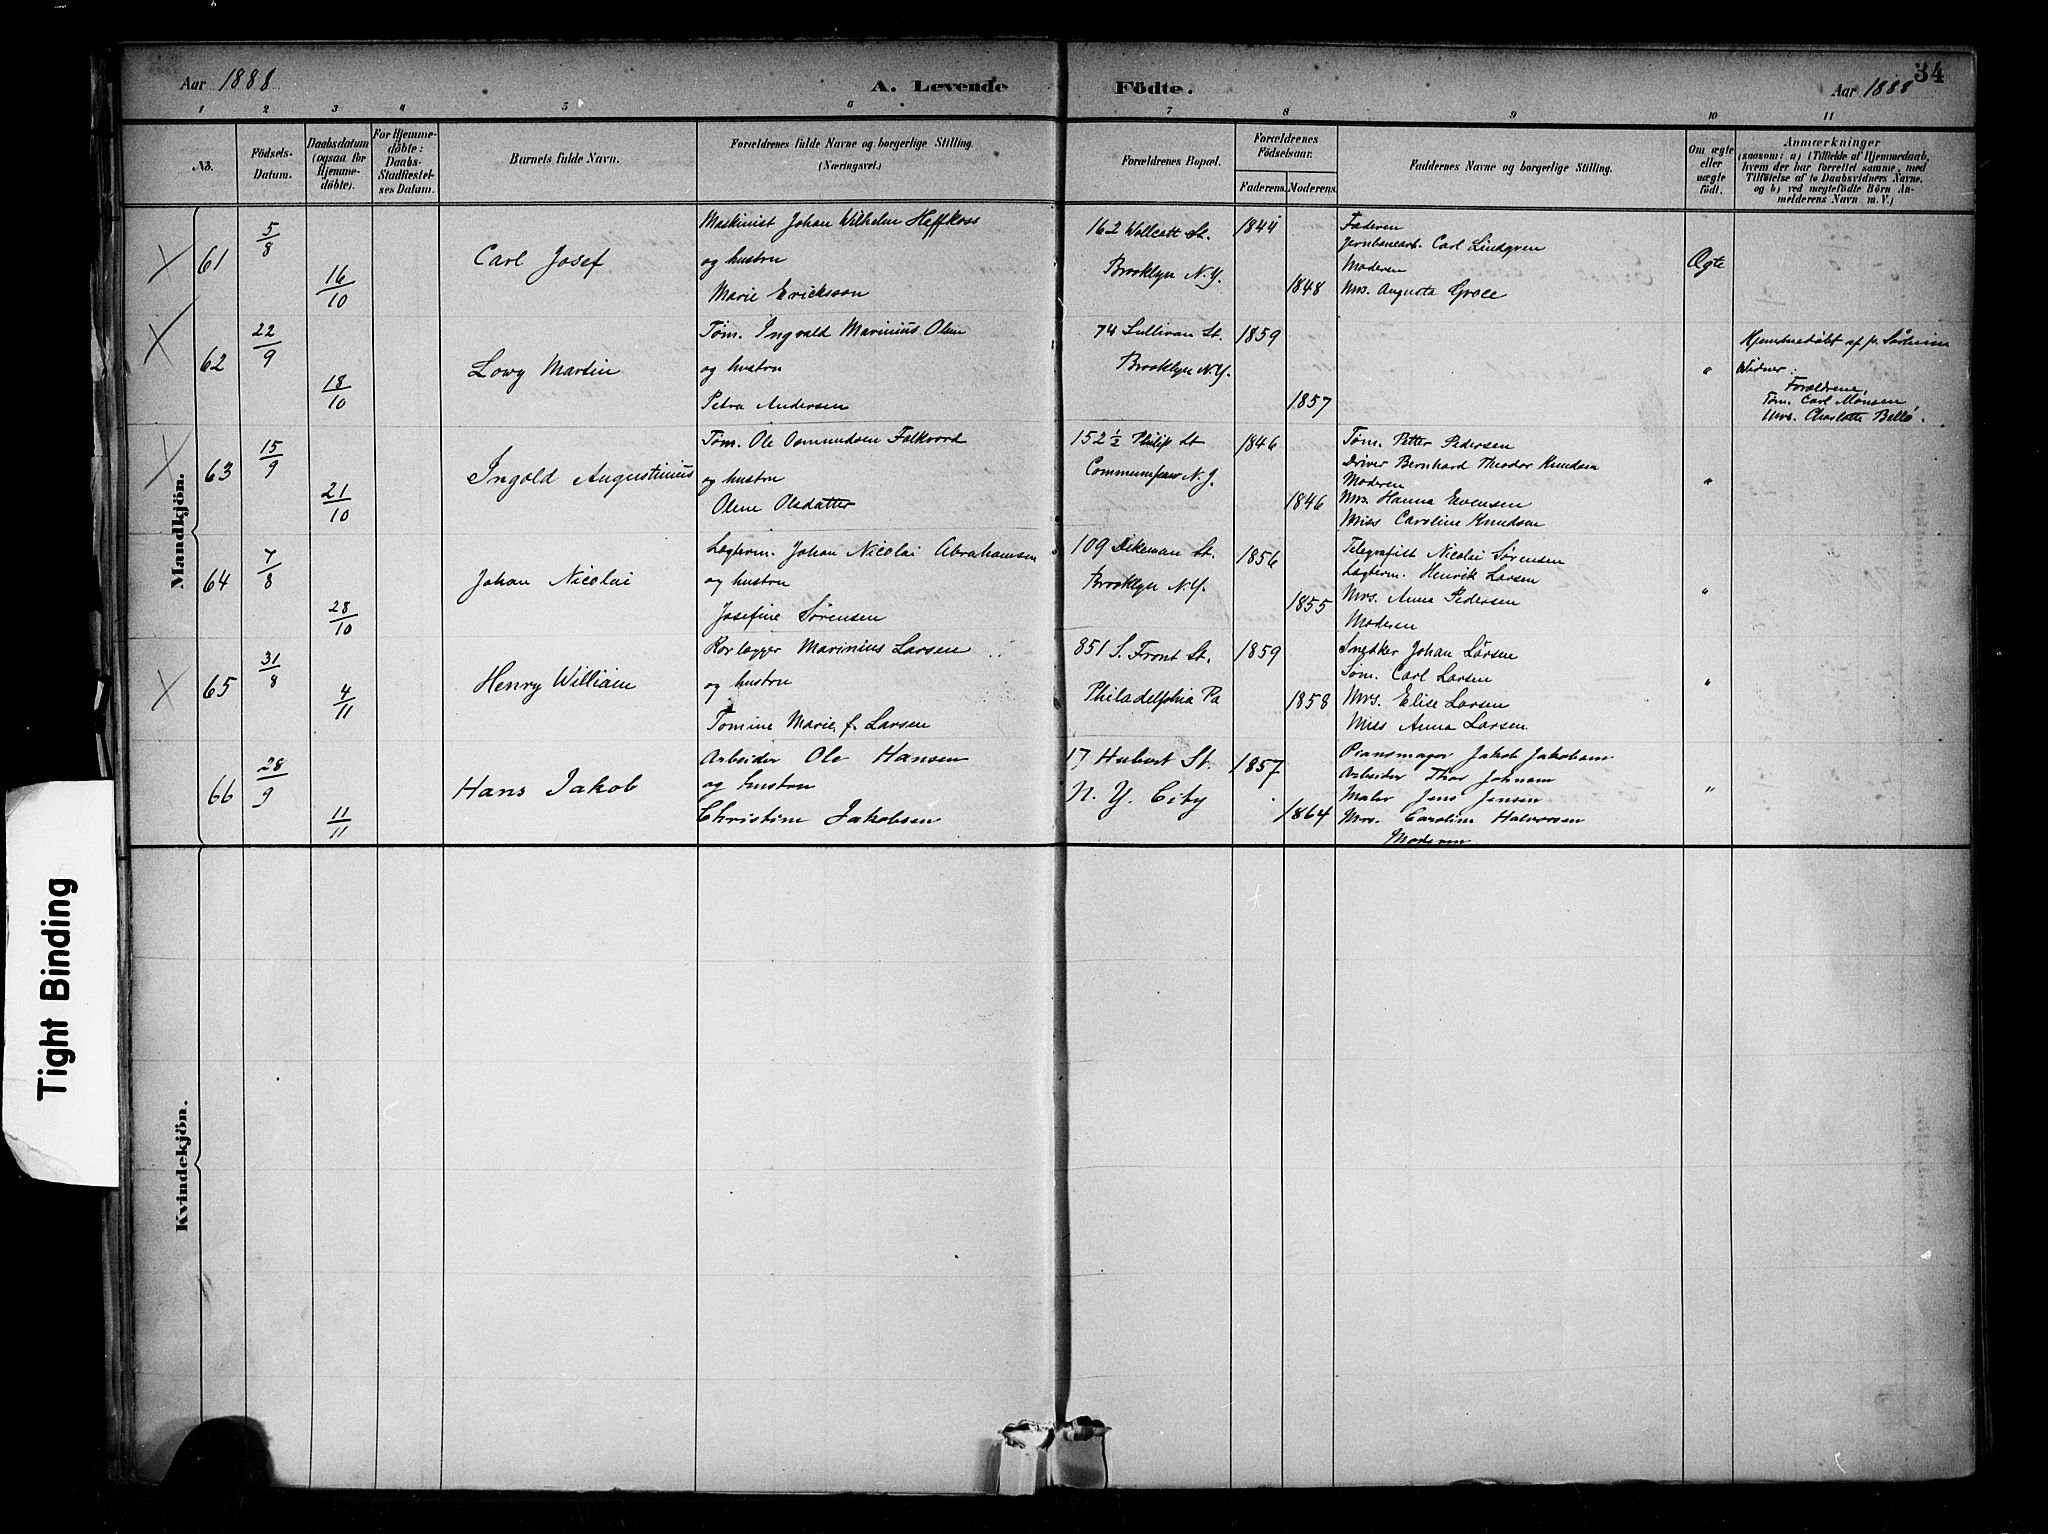 Aar 1888
A. Levende Födte.
Aar 1888
34
1 2 3 4 5 6 7 8 9 10 11
No.
Födsels-Datum.
Daabsdatum (ogsaa for Hjemmedöbte).
For Hjemmedöbte: Daabs-Stadfæstelses Datum.
Barnets fulde Navn.
Forældrenes fulde Navne og borgerlige Stilling. (Næringsvei.)
Forældrenes Bopæl.
Forældrenes Födselsaar.
Faderens. Moderens.
Faddernes Navne og borgerlige Stilling.
Om ægte eller uægte födt.
Anmærkninger
(saasom: a) i Tilfælde af Hjemmedaab, hvem der har forrettet samme, med Tilföielse af to Daabsvidners Navne, og b) ved uægtefödte Börn Anmelderens Navn m. V.)
Mandkjön.
61
5/8
16/10
Carl Josef
Maskinist Johan Wilhelm Haffkoss
og hustru
Marie Ericksson
162 Wolcott St.
Brooklyn N.Y.
1844
1848
Faderen
Jernbanearb. Carl Lindgren
Moderen
Mrs. Augusta Groce
Ægte
62
22/9
18/10
Lowy Martin
Tøm. Ingvald Marinius Olsen
og hustru
Petra Andersen
74 Sullivan St.
Brooklyn N.Y.
1859
1857
"
Hjemmedøbt af p. Sårheim
Vidner:
Forældrene,
Tøm. Carl Monsen
Mrs. Charlotte Bello.
63
15/9
21/10
Ingold Augustinius
Tøm. Ole Osmundsen Falkvord
og hustru
Olene Olsdatter
152 1/2 Philip St
Communipaw N.J.
1846
1846
Tøm. Petter Pedersen
Driver Bernhard Theodor Knudsen
Moderen
Mrs. Hanna Evensen
Miss Caroline Knudsen
"
64
7/8
28/10
Johan Nicolai
Lægterm. Johan Nicolai Abrahamsen
og hustru
Josefine Sørensen
109 Dikeman St.
Brooklyn N.Y.
1856
1855
Telegrafist Nicolai Sørensen
Lægterm. Henrik Larsen
Mrs. Anna Pedersen
Moderen
"
65
31/8
4/11
Henry William
Rørlægger Marinius Larsen
og hustru
Tomine Marie f. Larsen
851 S. Front St.
Philadelphia Pa
1859
1858
Snedker Johan Larsen
Søm. Carl Larsen
Mrs. Elise Larsen
Miss Anna Larsen
"
66
28/9
11/11
Hans Jakob
Arbeider Ole Hansen
og hustru
Christine Jakobsen
17 Hubert St.
N. Y. City
1857
1864
Pianomager Jakob Jakobsen
Arbeider Thor Johnsen
Maler Jens Jensen
Mrs. Caroline Halvorsen
Moderen
"
Kvindekjön.
Tight Binding